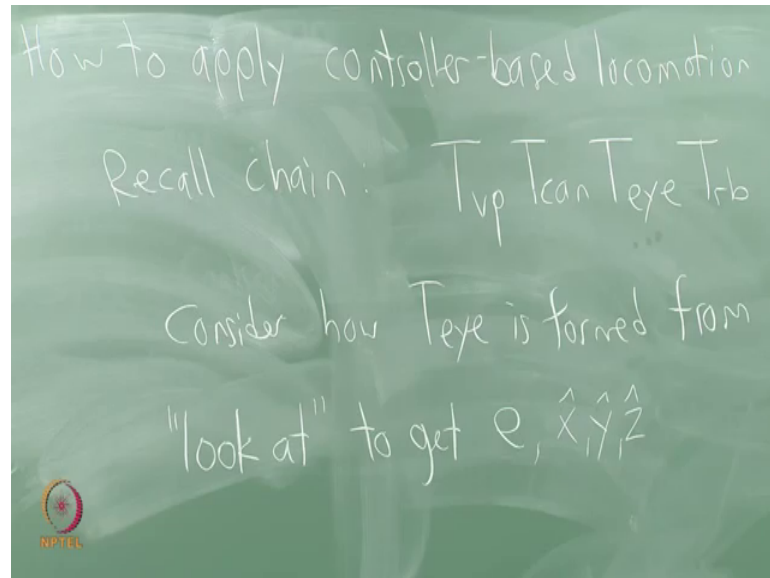 How to apply controller-based locomotion
Recall chain: T_vp T_can T_eye T_rb
Consider how T_eye is formed from
"look at" to get e, x̂, ŷ, ẑ
NPTEL